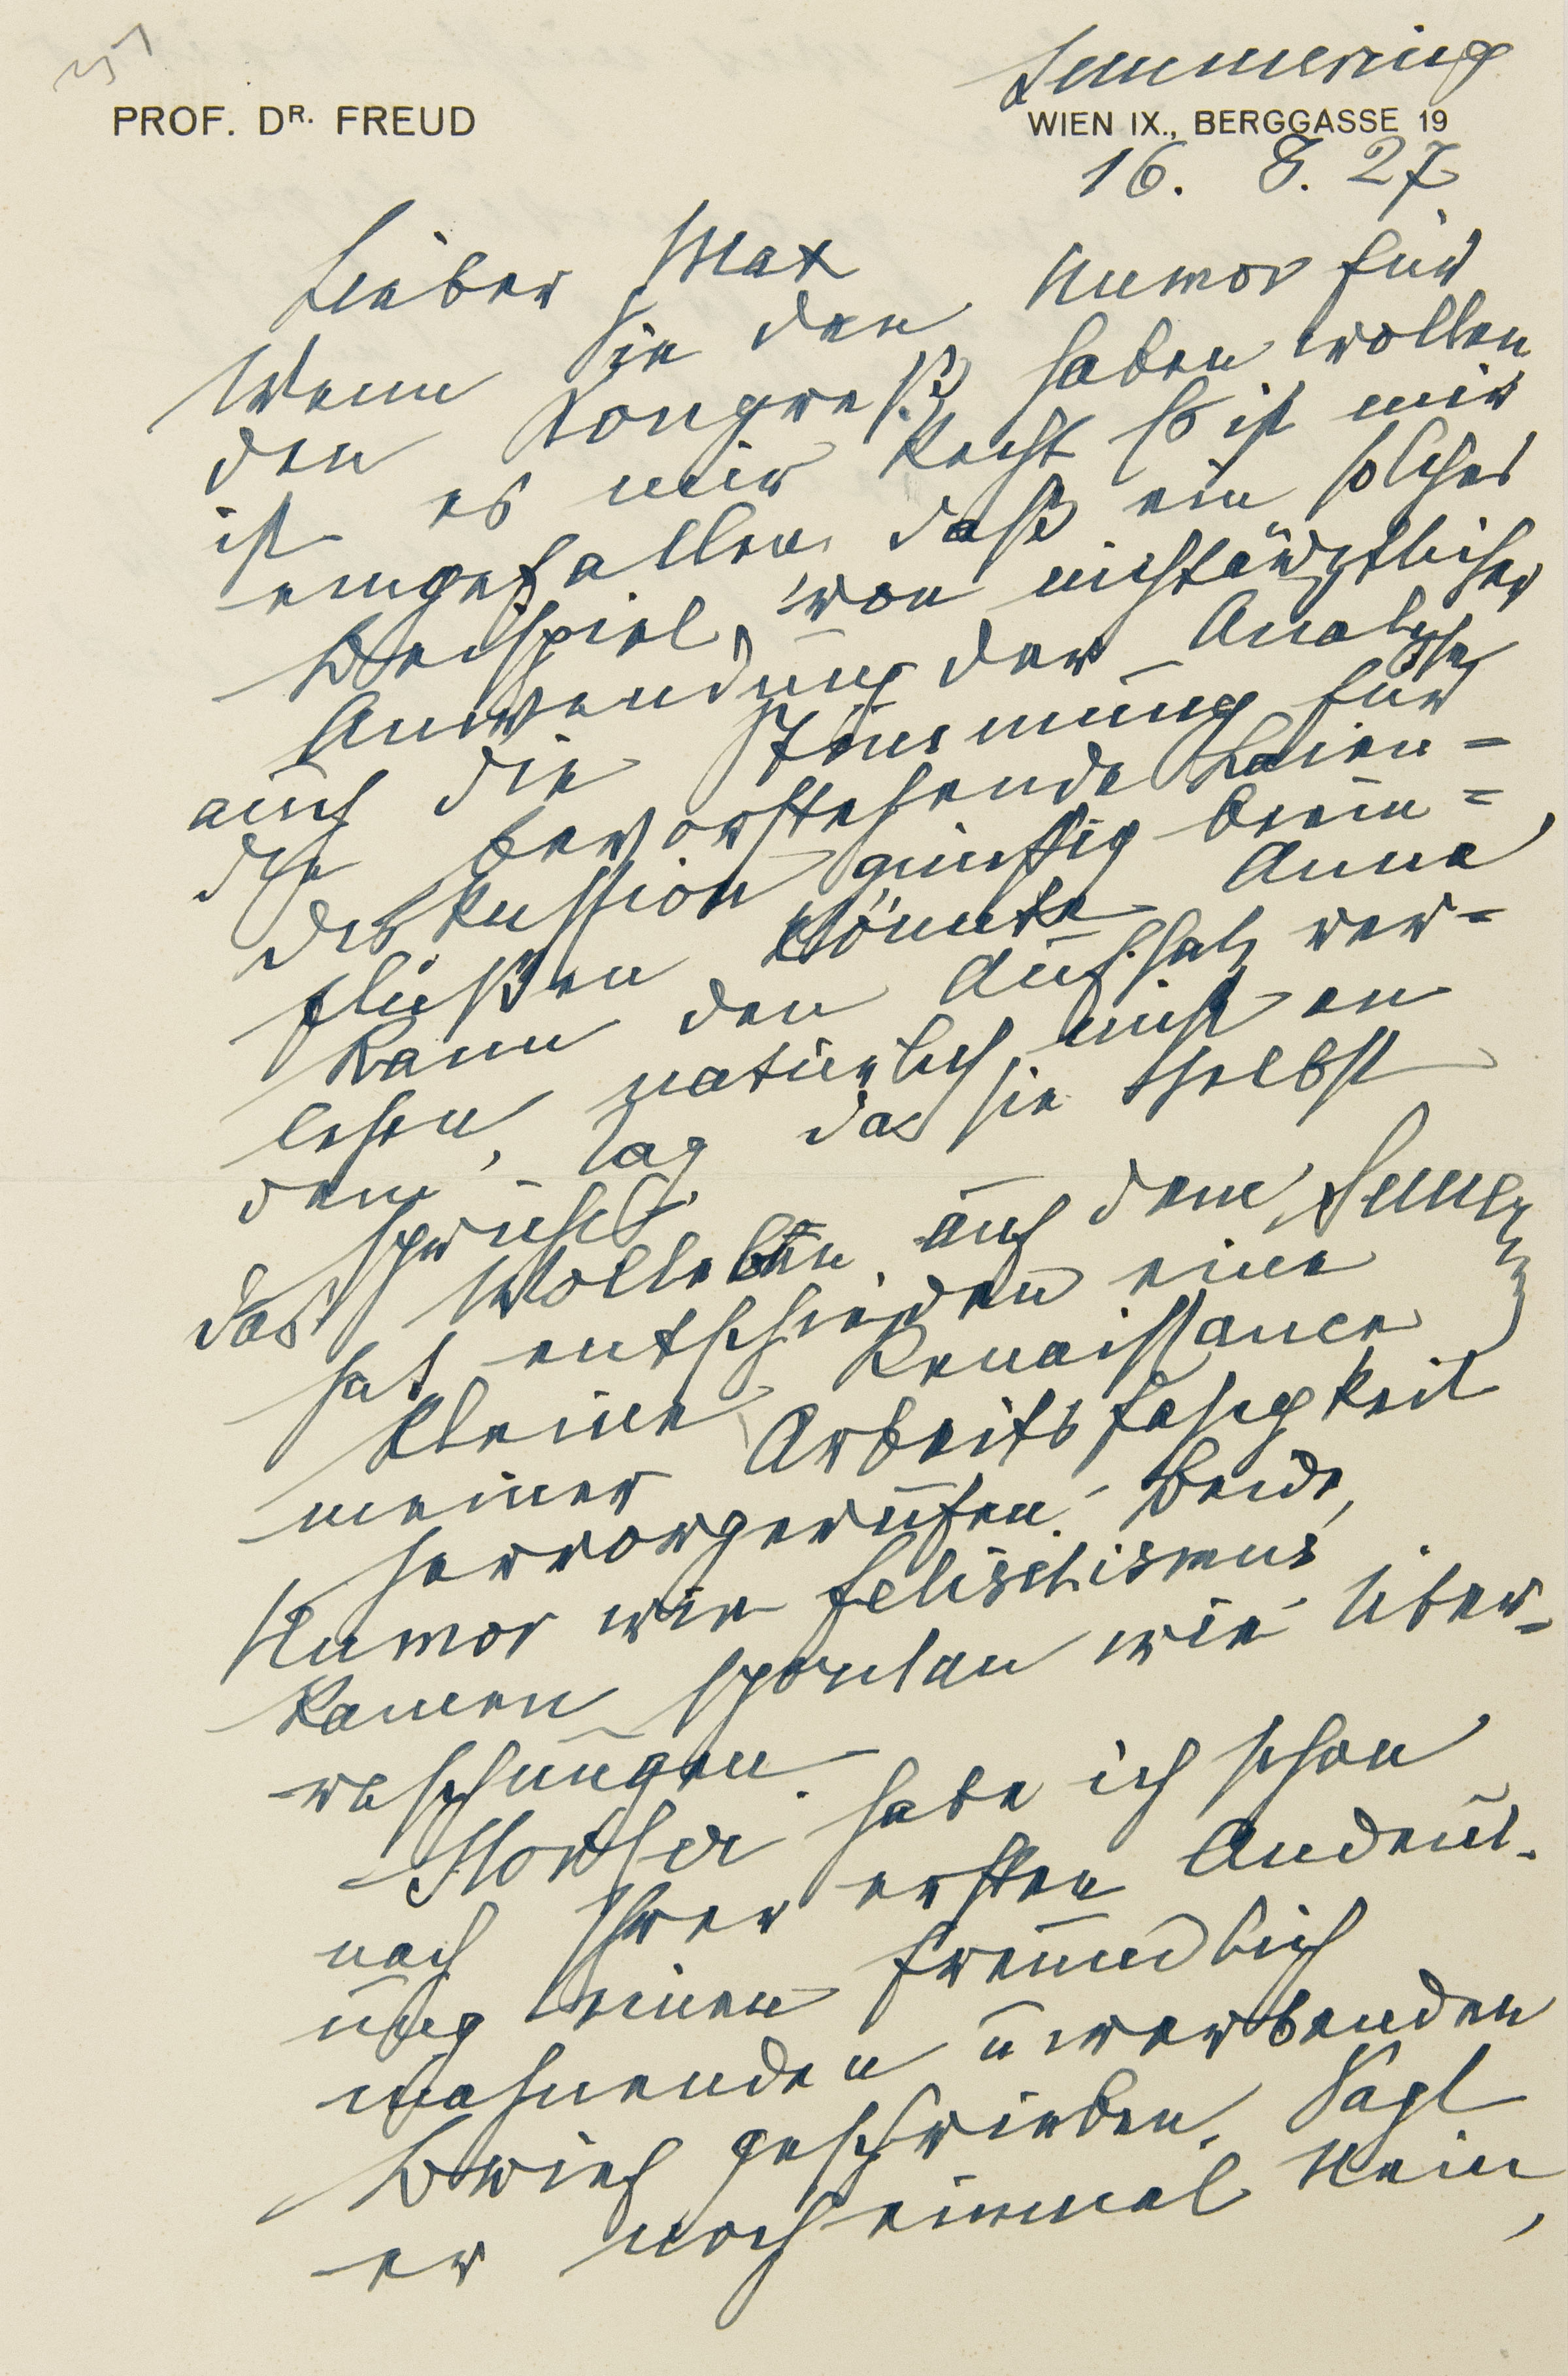 Semmering
PROF. DR. FREUD
WIEN IX., BERGGASSE 19
16. 8. 27
Lieber Max
Wenn Sie den Humor für
den Kongreß haben wollen
ist es mir Recht Es ist mir
eingefallen daß ein solches
Beispiel von nichtärztlicher
Anwendung der Analyse
auch die Stimmung für
die bevorstehende Laien=
diskussion günstig beein=
flußen könnte. Anna
kann den Aufsatz ver=
lesen, natürlich nicht an
dem Tag da sie selbst
spricht.
Das Wolleben auf dem Semg
hat entschieden eine
kleine Renaissance
meiner Arbeitsfähigkeit
hervorgerufen. Beide,
Humor wie Fetischismus
kamen spontan wie Über=
raschungen.
habe ich schon
nach Ihrer ersten Andeut-
ung einen freundlich
mahnenden u werbenden
Brief geschrieben. Sagt
er noch einmal Nein,